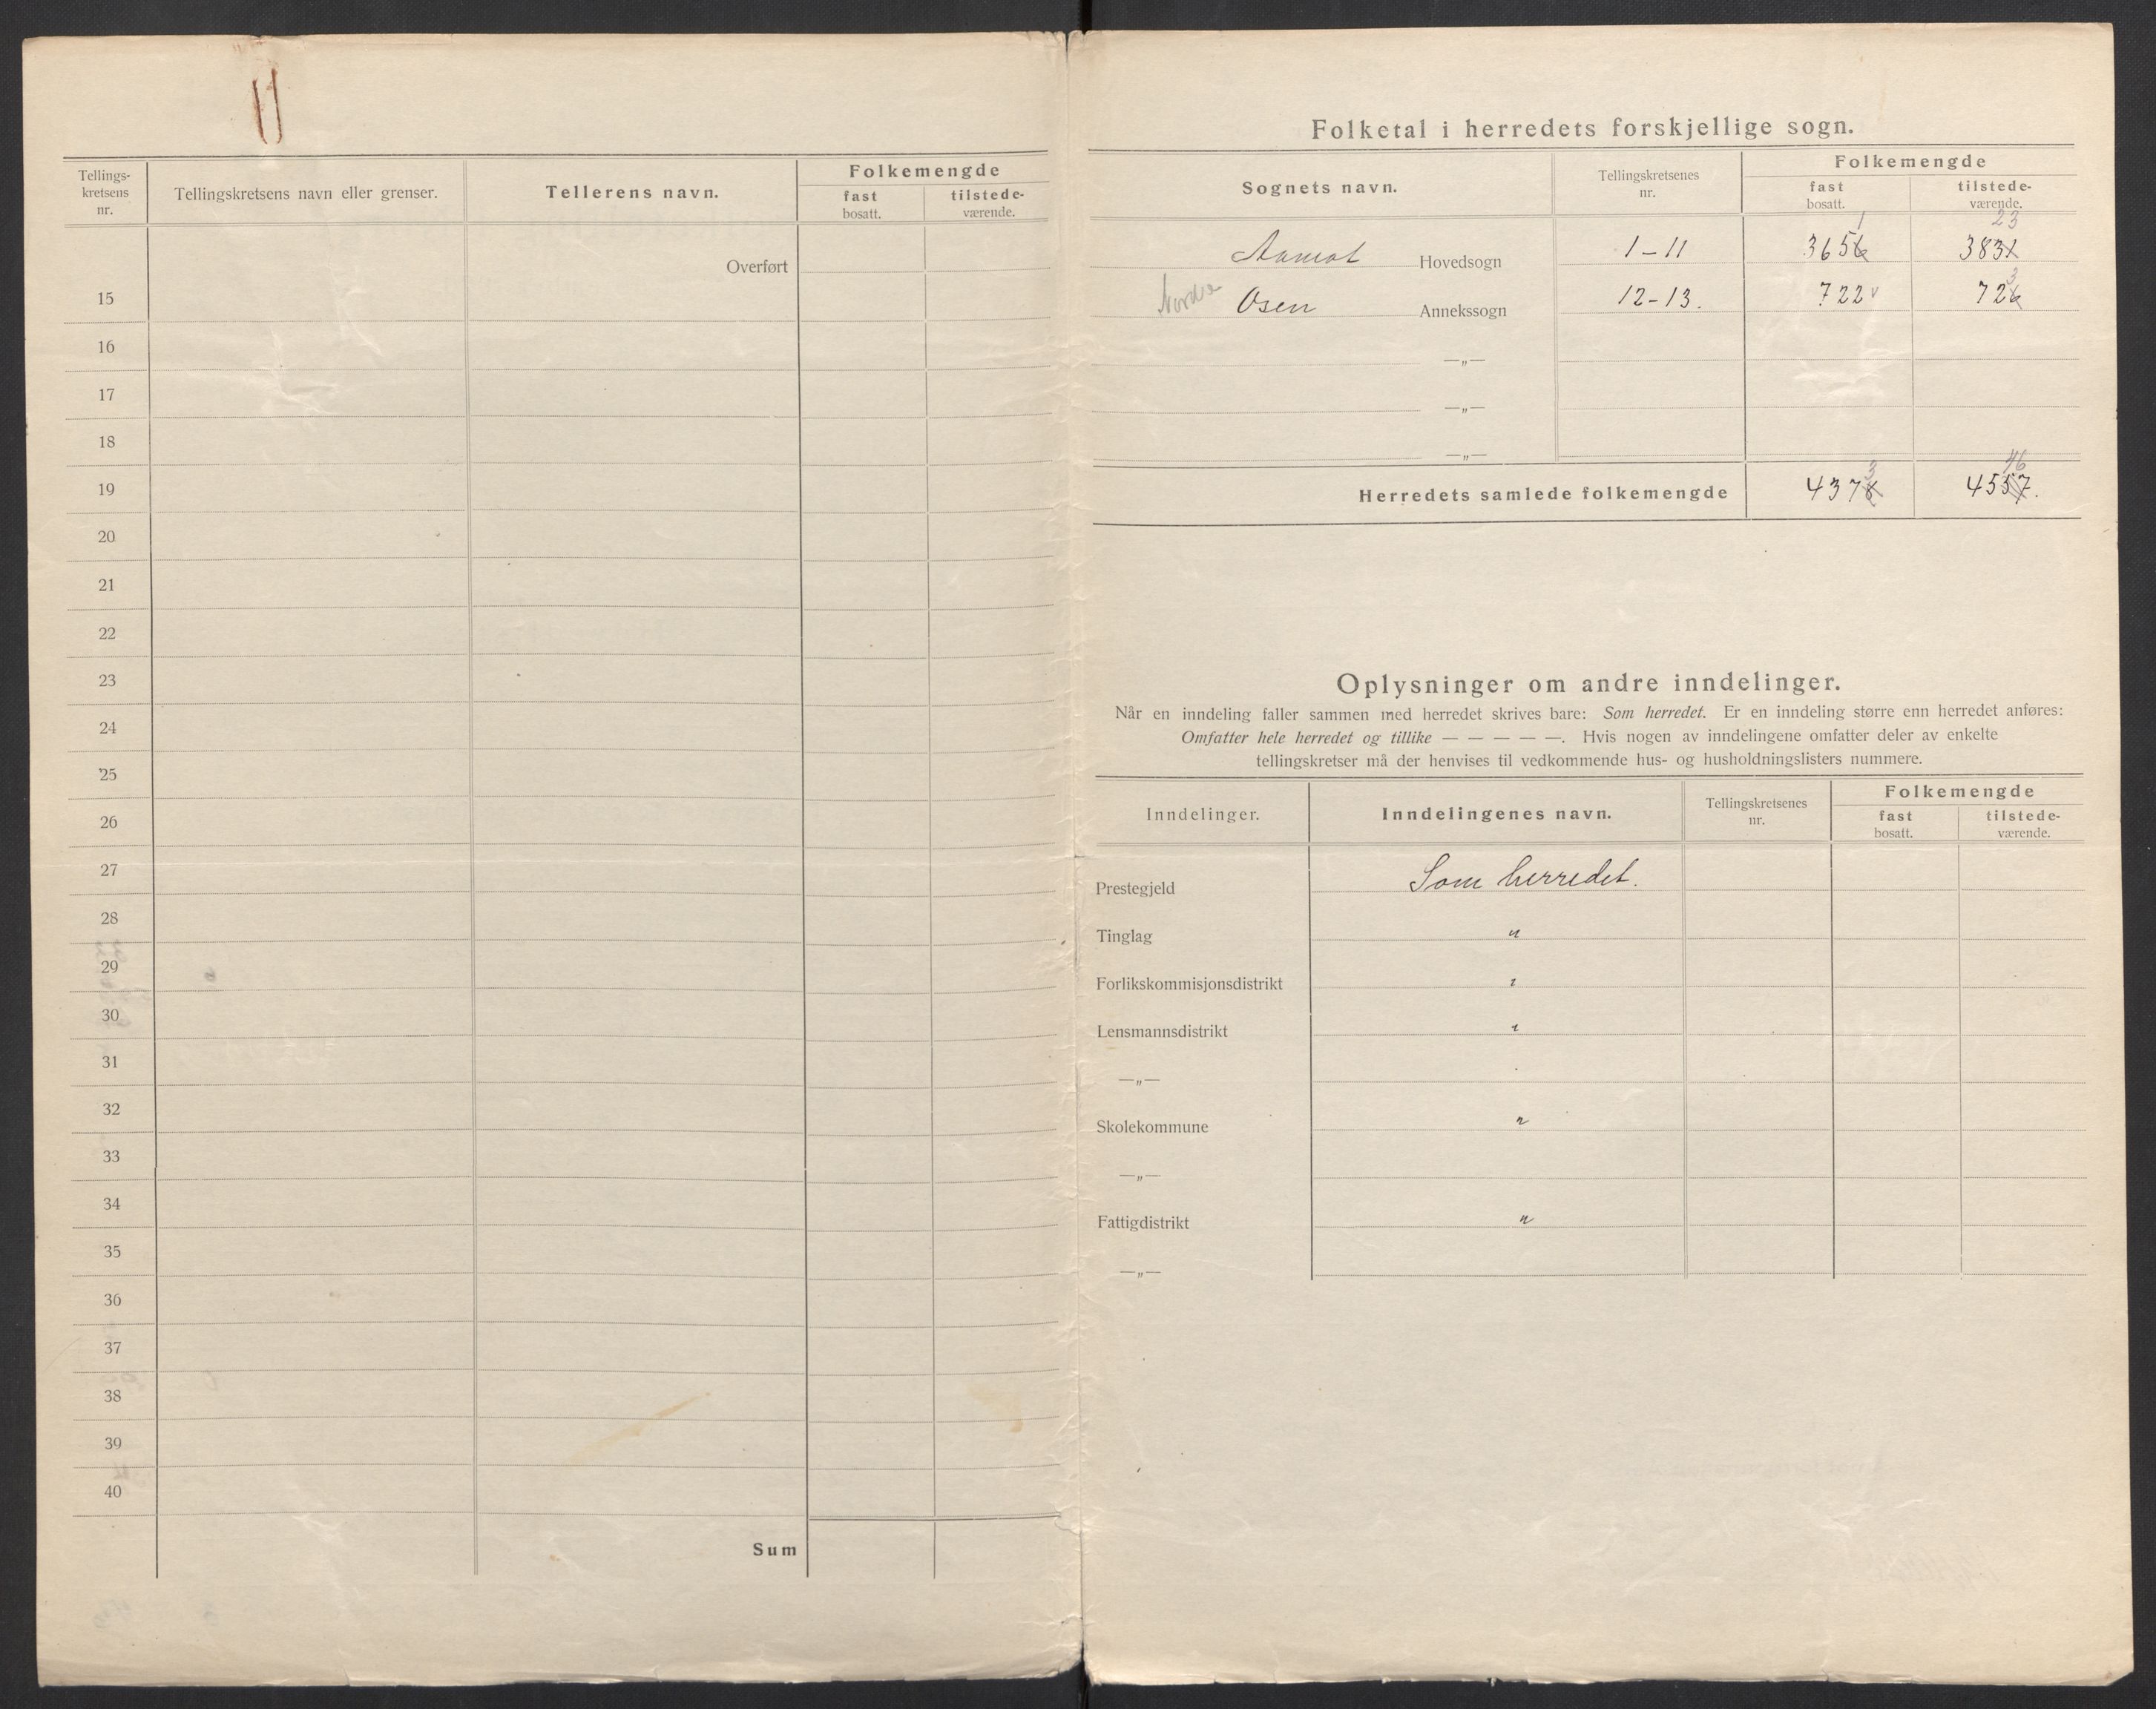 Tellings-
kretsens
nr.
Tellingskretsens navn eller grenser.
Tellerens navn.
Folkemengde
fast
bosatt.
tilstede-
værende.
Overført
15
16
17
18
19
20
21
22
23
24
25
26
27
28
29
30
31
32
33
34
35
36
37
38
39
40
Sum
Folketal i herredets forskjellige sogn.
Sognets navn.
Tellingskretsenes
nr.
Folkemengde
fast
bosatt.
tilstede-
værende.
1 23
Aamot Hovedsogn 1-11 3656 3831
3
Nordre Osen Annekssogn 12-13. 722 v 726
—„—
—„—
—„—
3 46
Herredets samlede folkemengde 4378 4557.
Oplysninger om andre inndelinger.
Når en inndeling faller sammen med herredet skrives bare: Som herredet. Er en inndeling større enn herredet anføres:
Omfatter hele herredet og tillike — — — — —. Hvis nogen av inndelingene omfatter deler av enkelte
tellingskretser må der henvises til vedkommende hus- og husholdningslisters nummere.
Inndelinger.
Inndelingenes navn.
Tellingskretsenes
nr.
Folkemengde
fast
bosatt.
tilstede-
værende.
Prestegjeld Som herredet.
Tinglag "
Forlikskommisjonsdistrikt "
Lensmannsdistrikt "
—„—
Skolekommune "
—„—
Fattigdistrikt "
—„—